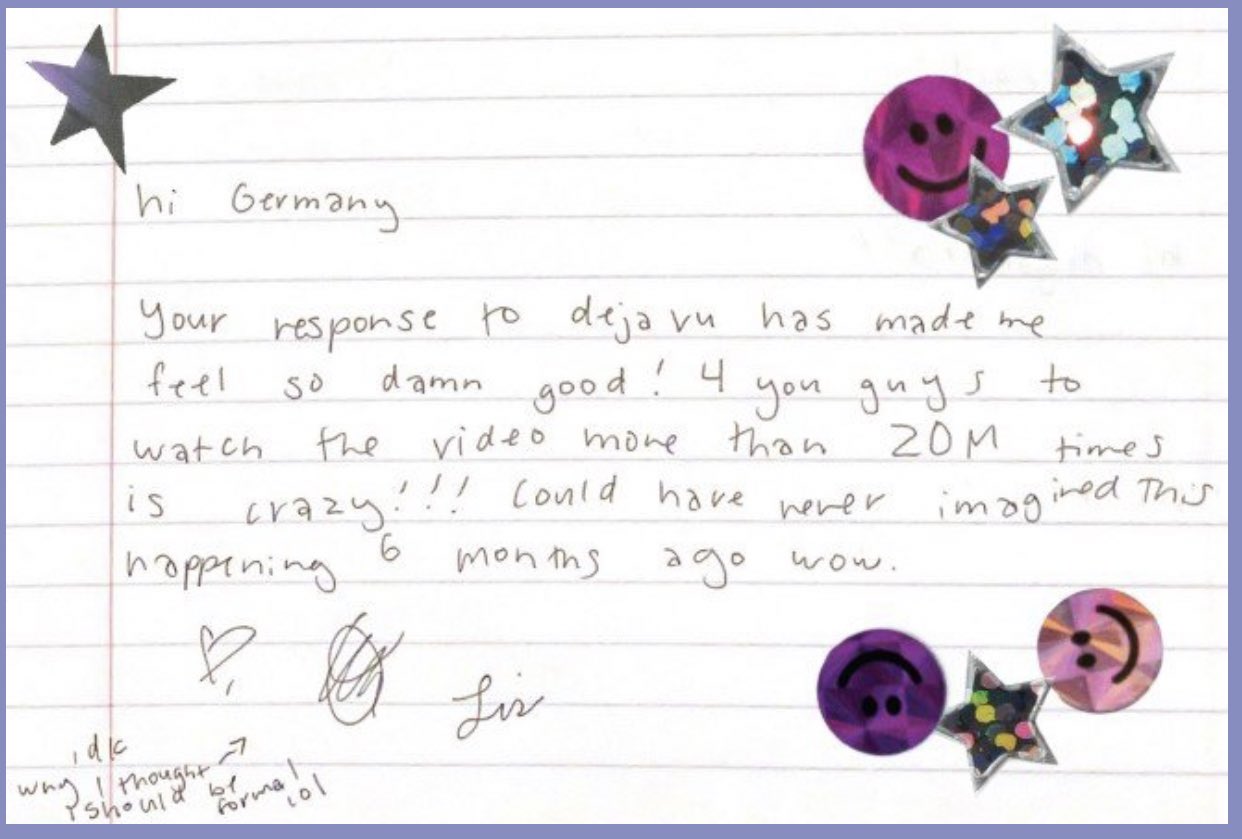 hi Germany
Your response to deja vu has made me
feel so damn good! 4 you guys to
watch the video more than 20M times
is crazy!!! Could have never imagined this
happening 6 months ago wow.
♡, Liv
idk
why I thought →
I should be
formal lol